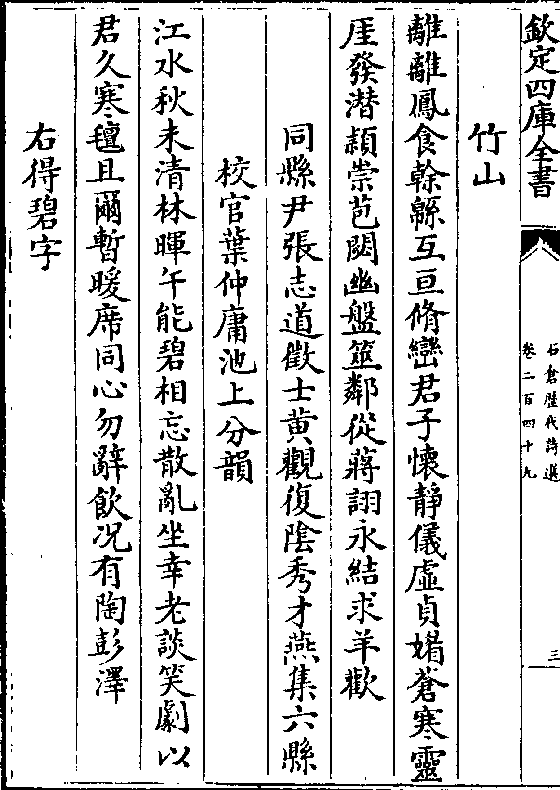 欽定四庫全書
石倉歷代詩選
卷二百四十九
三
竹山
離離鳳食榦緜互亘脩巒君子懷靜儀虛貞媚蒼寒靈
厓發潛穎崇苞閟幽盤筮鄰從蔣詡永結求羊歡
同縣尹張志道徵士黄觀復陰秀才燕集六縣
校官葉仲庸池上分韻
江水秋未清林暉午能碧相忘散亂坐幸老談笑劇以
君久寒氊且爾暫暖席同心勿辭飲况有陶彭澤
右得碧字